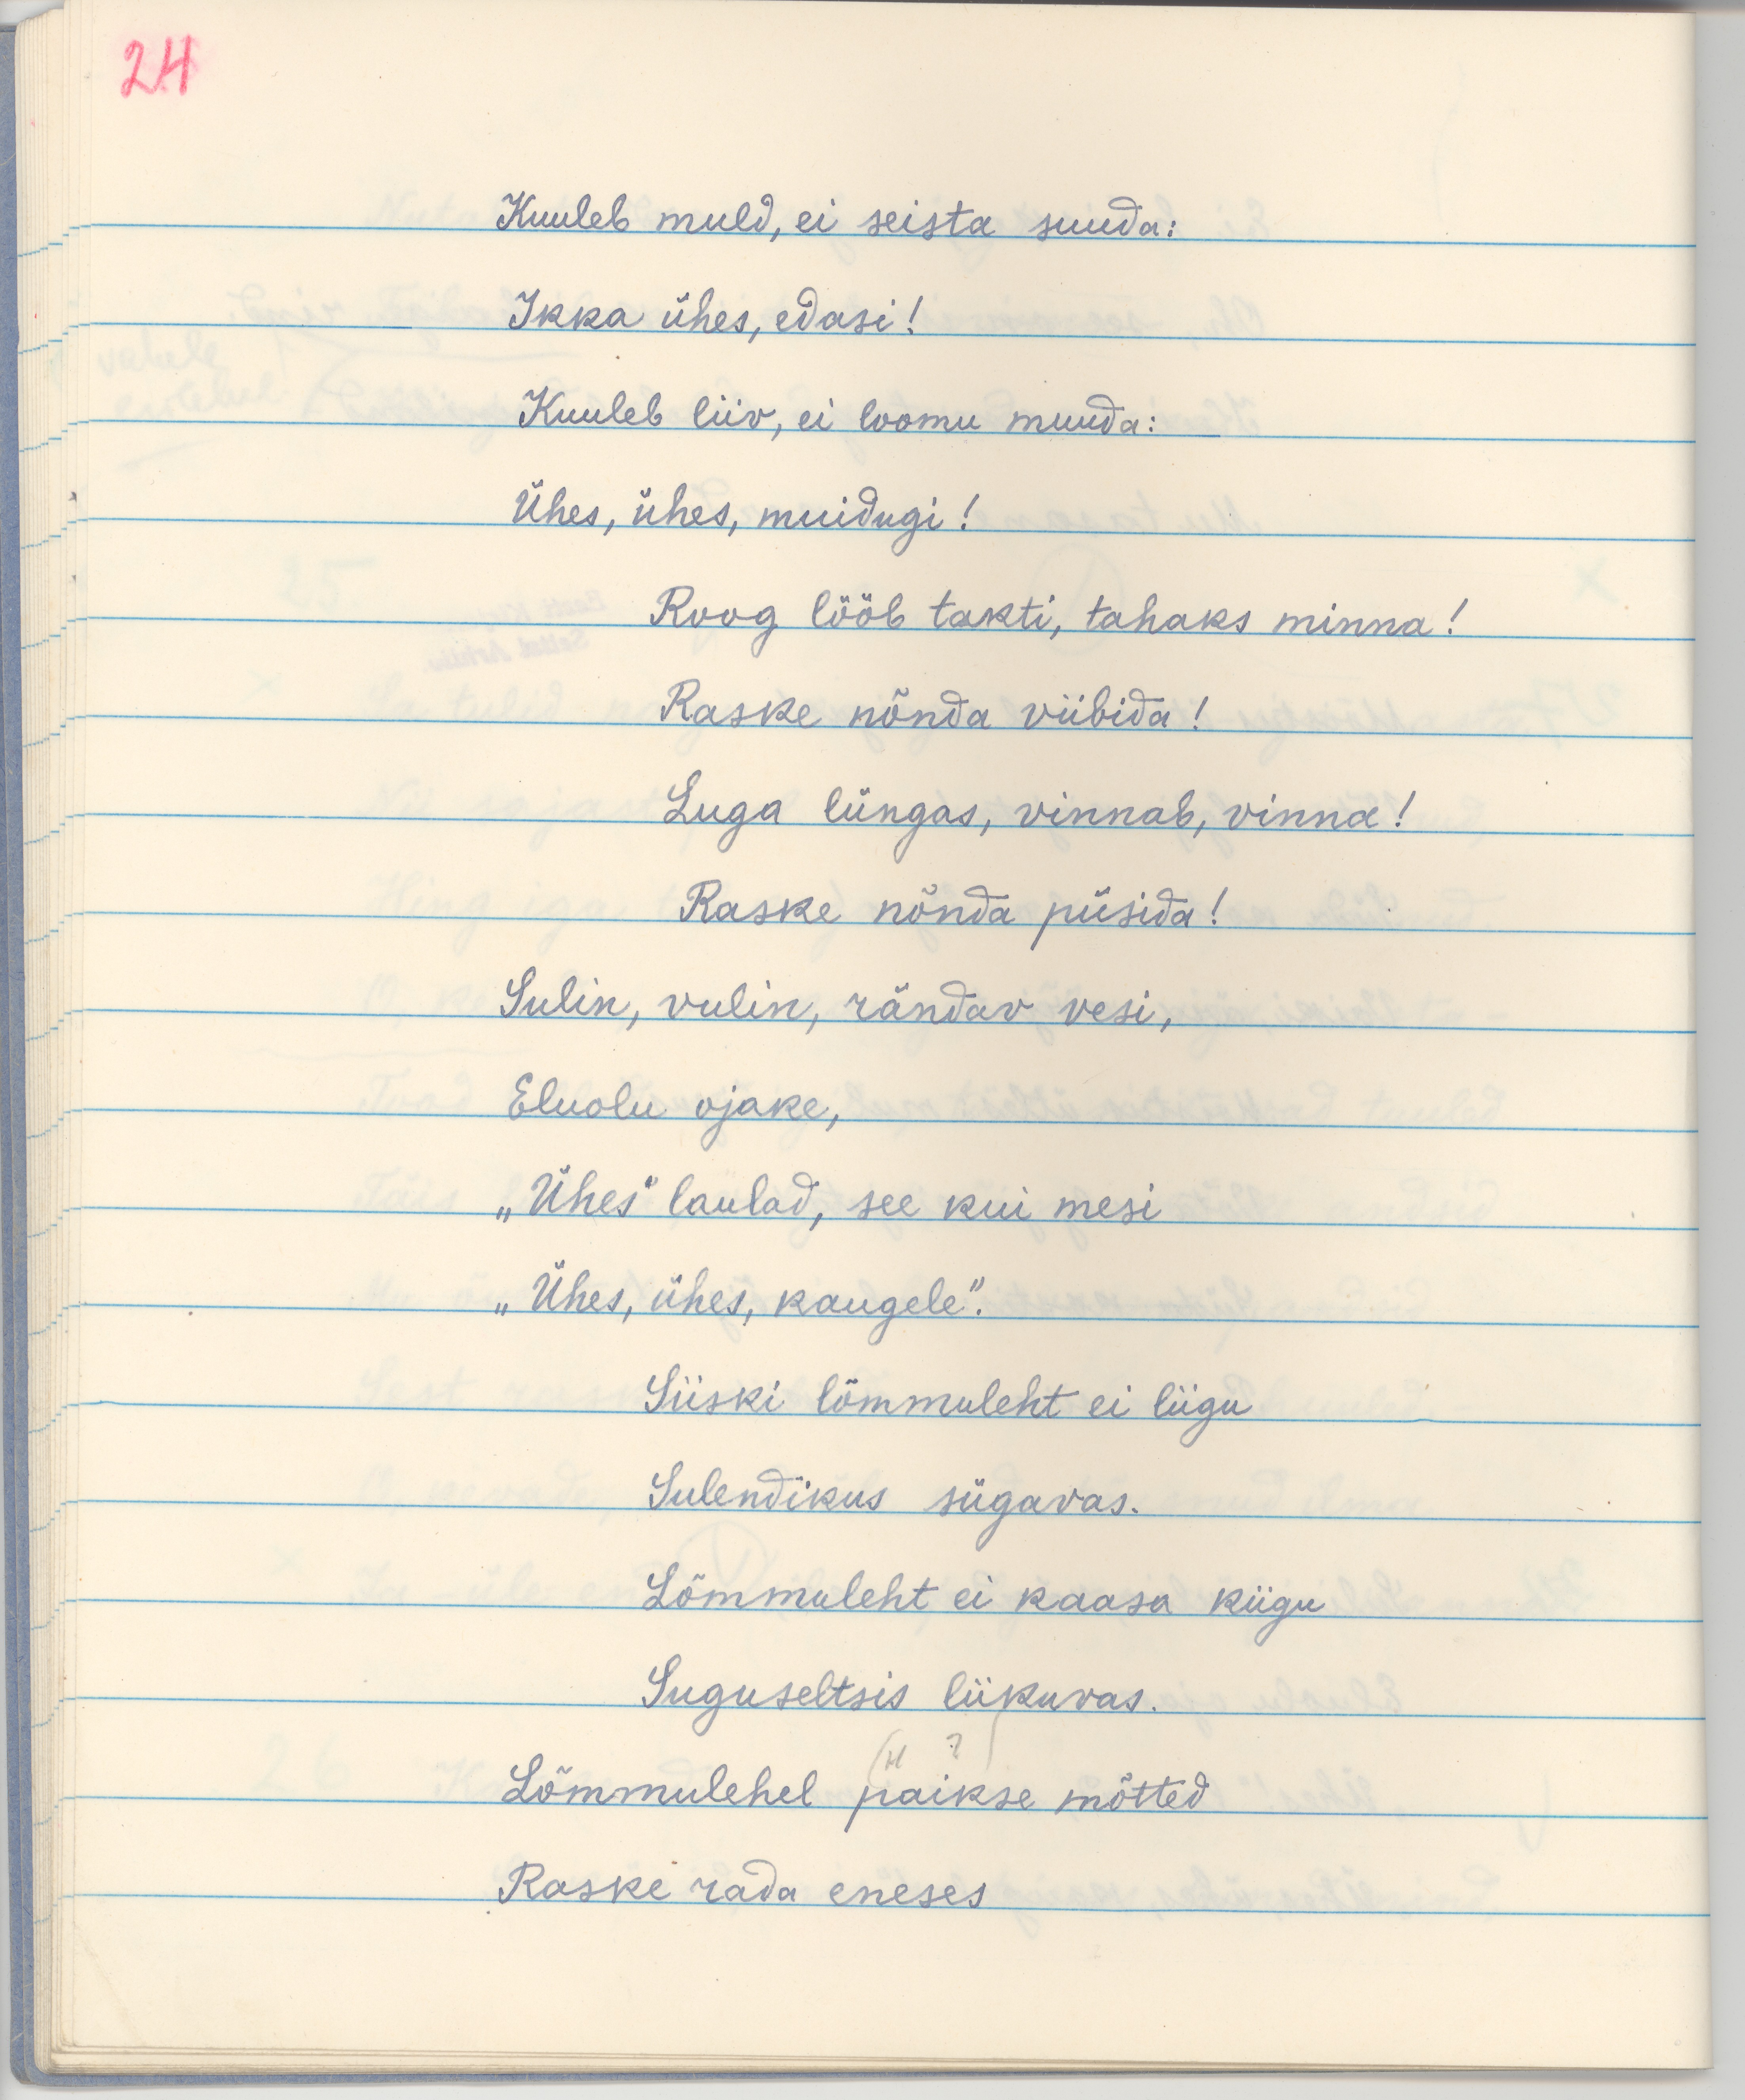 24
Kuuleb muld, ei seista suuda:
Ikka ühes, edasi!
Kuuleb liiv, ei loomu muuda:
Ühes, ühes, muidugi!
Roog lööb takti, tahaks minna!
Raske nõnda viibida!
Luga lüngas, vinnab, vinna!
Raske nõnda püsida!
Sulin, vulin, rändav vesi,
Eluolu ojake,
„Ühes" laulad, see kui mesi
„Ühes, ühes, kaugele".
Siiski lõmmuleht ei liigu
Sulendikus sügavas.
Lõmmuleht ei kaasa kiigu
Suguseltsis liikuvas.
Lõmmulehel paikse mõtted
Raske rada eneses